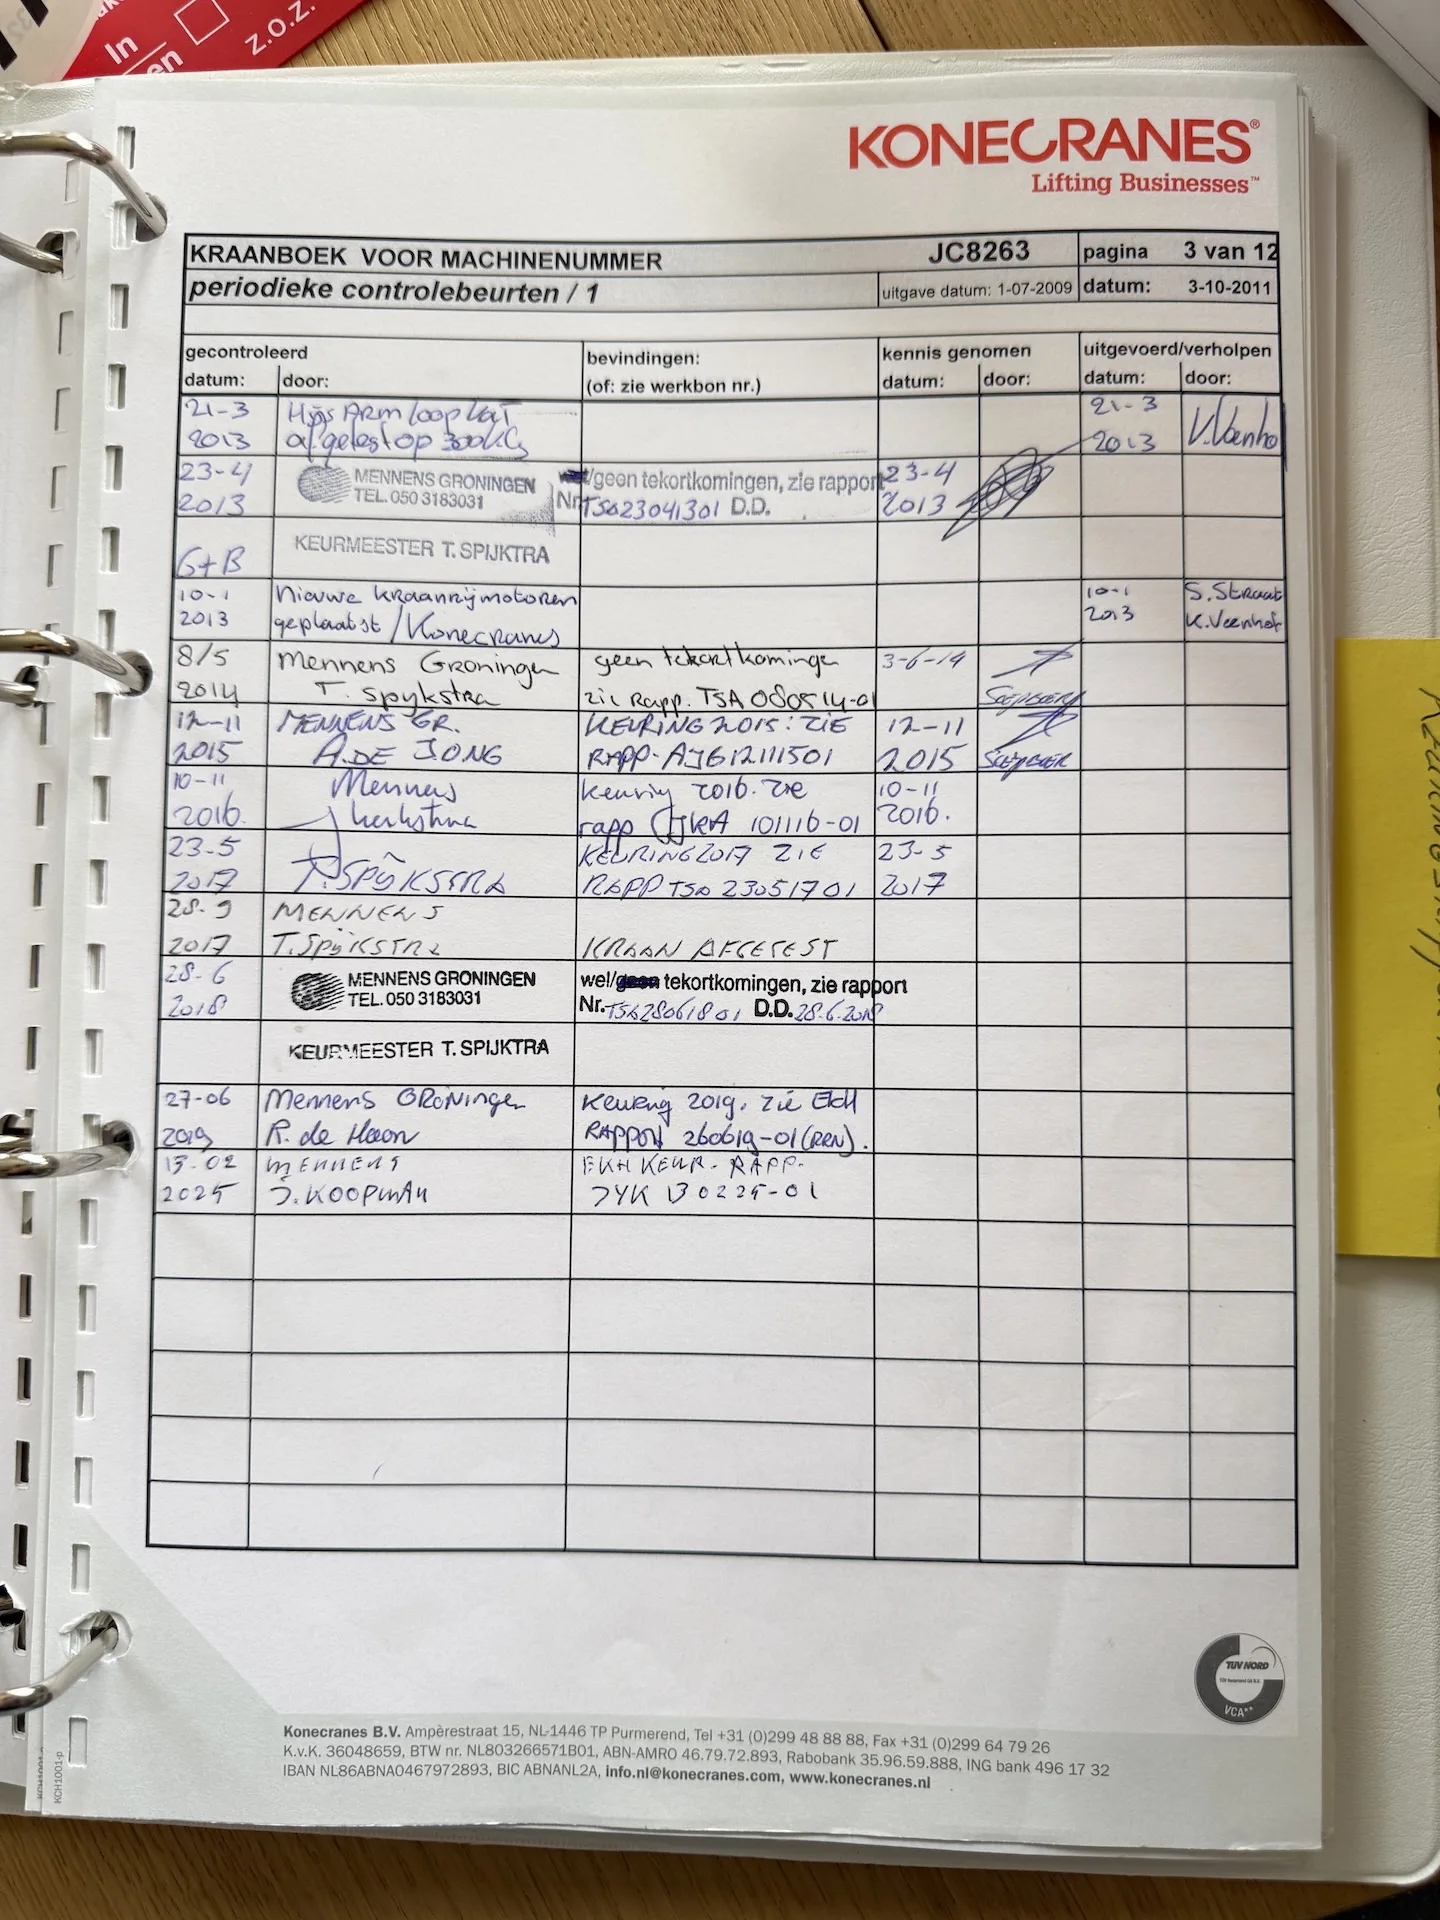 In
en
z.o.z.
KONECRANES®
Lifting Businesses™
KRAANBOEK VOOR MACHINENUMMER JC8263 pagina 3 van 12
periodieke controlebeurten / 1 uitgave datum: 1-07-2009 datum: 3-10-2011
gecontroleerd bevindingen: kennis genomen uitgevoerd/verholpen
datum: door: (of: zie werkbon nr.) datum: door: datum: door:
21-3 Hijs Arm loopkat 21-3
2013 afgetest op 300KG 2013 V.Veenho
23-4 MENNENS GRONINGEN /geen tekortkoming, zie rapport 23-4
2013 TEL. 050 3183031 Nr. TSA23041301 D.D. 2013
KEURMEESTER T. SPIJKTRA
G+B
10-1 Nieuwe kraanrijmotoren 10-1 S. Straat
2013 geplaatst / Konecranes 2013 K. Veenhof
8/5 Mennens Groningen geen tekortkominge 3-6-14
2014 T. Spykstra zie Rapp. TSA 080514-01
12-11 MENNENS GR. KEURING 2015: ZIE 12-11
2015 A. DE JONG RAPP. AJG12111501 2015
10-11 Mennens keuring 2016. zie 10-11
2016. rapp 101116-01 2016.
23-5 KEURING 2017 ZIE 23-5
2017 T. SPIJKSTRA RAPP TSA 23051701 2017
28-9 MENNENS
2017 T. SPIJKSTRA KRAAN AFGETEST
28-6 MENNENS GRONINGEN wel/geen tekortkomingen, zie rapport
2018 TEL. 050 3183031 Nr. TSA28061801 D.D. 28-6-2018
KEURMEESTER T. SPIJKTRA
27-06 Mennens GRONINGEN Keuring 2019. zie EKH
2019 R. de Haan RAPPORT 260619-01 (RRN).
13-02 MENNENS EKH KEUR. RAPP.
2025 J. KOOPMAN JYK 130225-01
TÜV NORD
VCA**
Konecranes B.V. Ampèrestraat 15, NL-1446 TP Purmerend, Tel +31 (0)299 48 88 88, Fax +31 (0)299 64 79 26
K.v.K. 36048659, BTW nr. NL803266571B01, ABN-AMRO 46.79.72.893, Rabobank 35.96.59.888, ING bank 496 17 32
IBAN NL86ABNA0467972893, BIC ABNANL2A, info.nl@konecranes.com, www.konecranes.nl
KCH1001-p